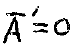 A̅′=0